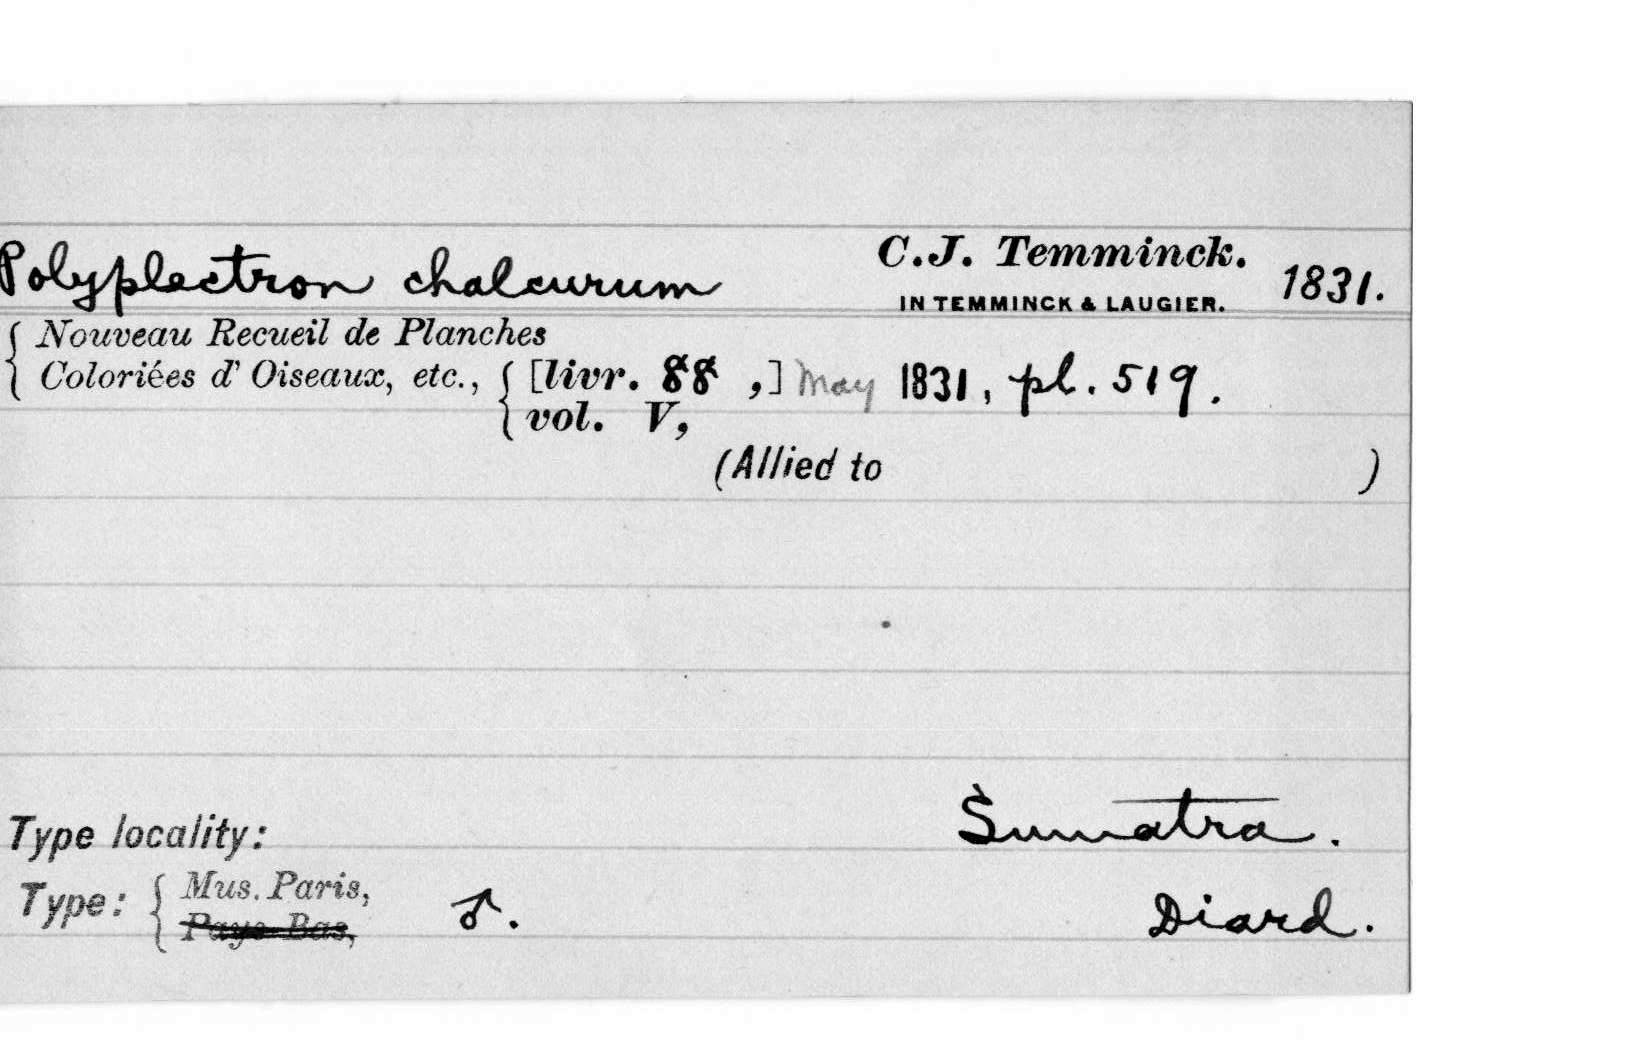 Polyplectron chalcurum C.J. Temminck. 1831.
IN TEMMINCK & LAUGIER.
Nouveau Recueil de Planches
Coloriées d' Oiseaux, etc., [livr. 88 ,] May 1831, pl. 519.
vol. V,
(Allied to )
Type locality: Sumatra.
Type: Mus. Paris, ♂. Diard.
Pays-Bas,